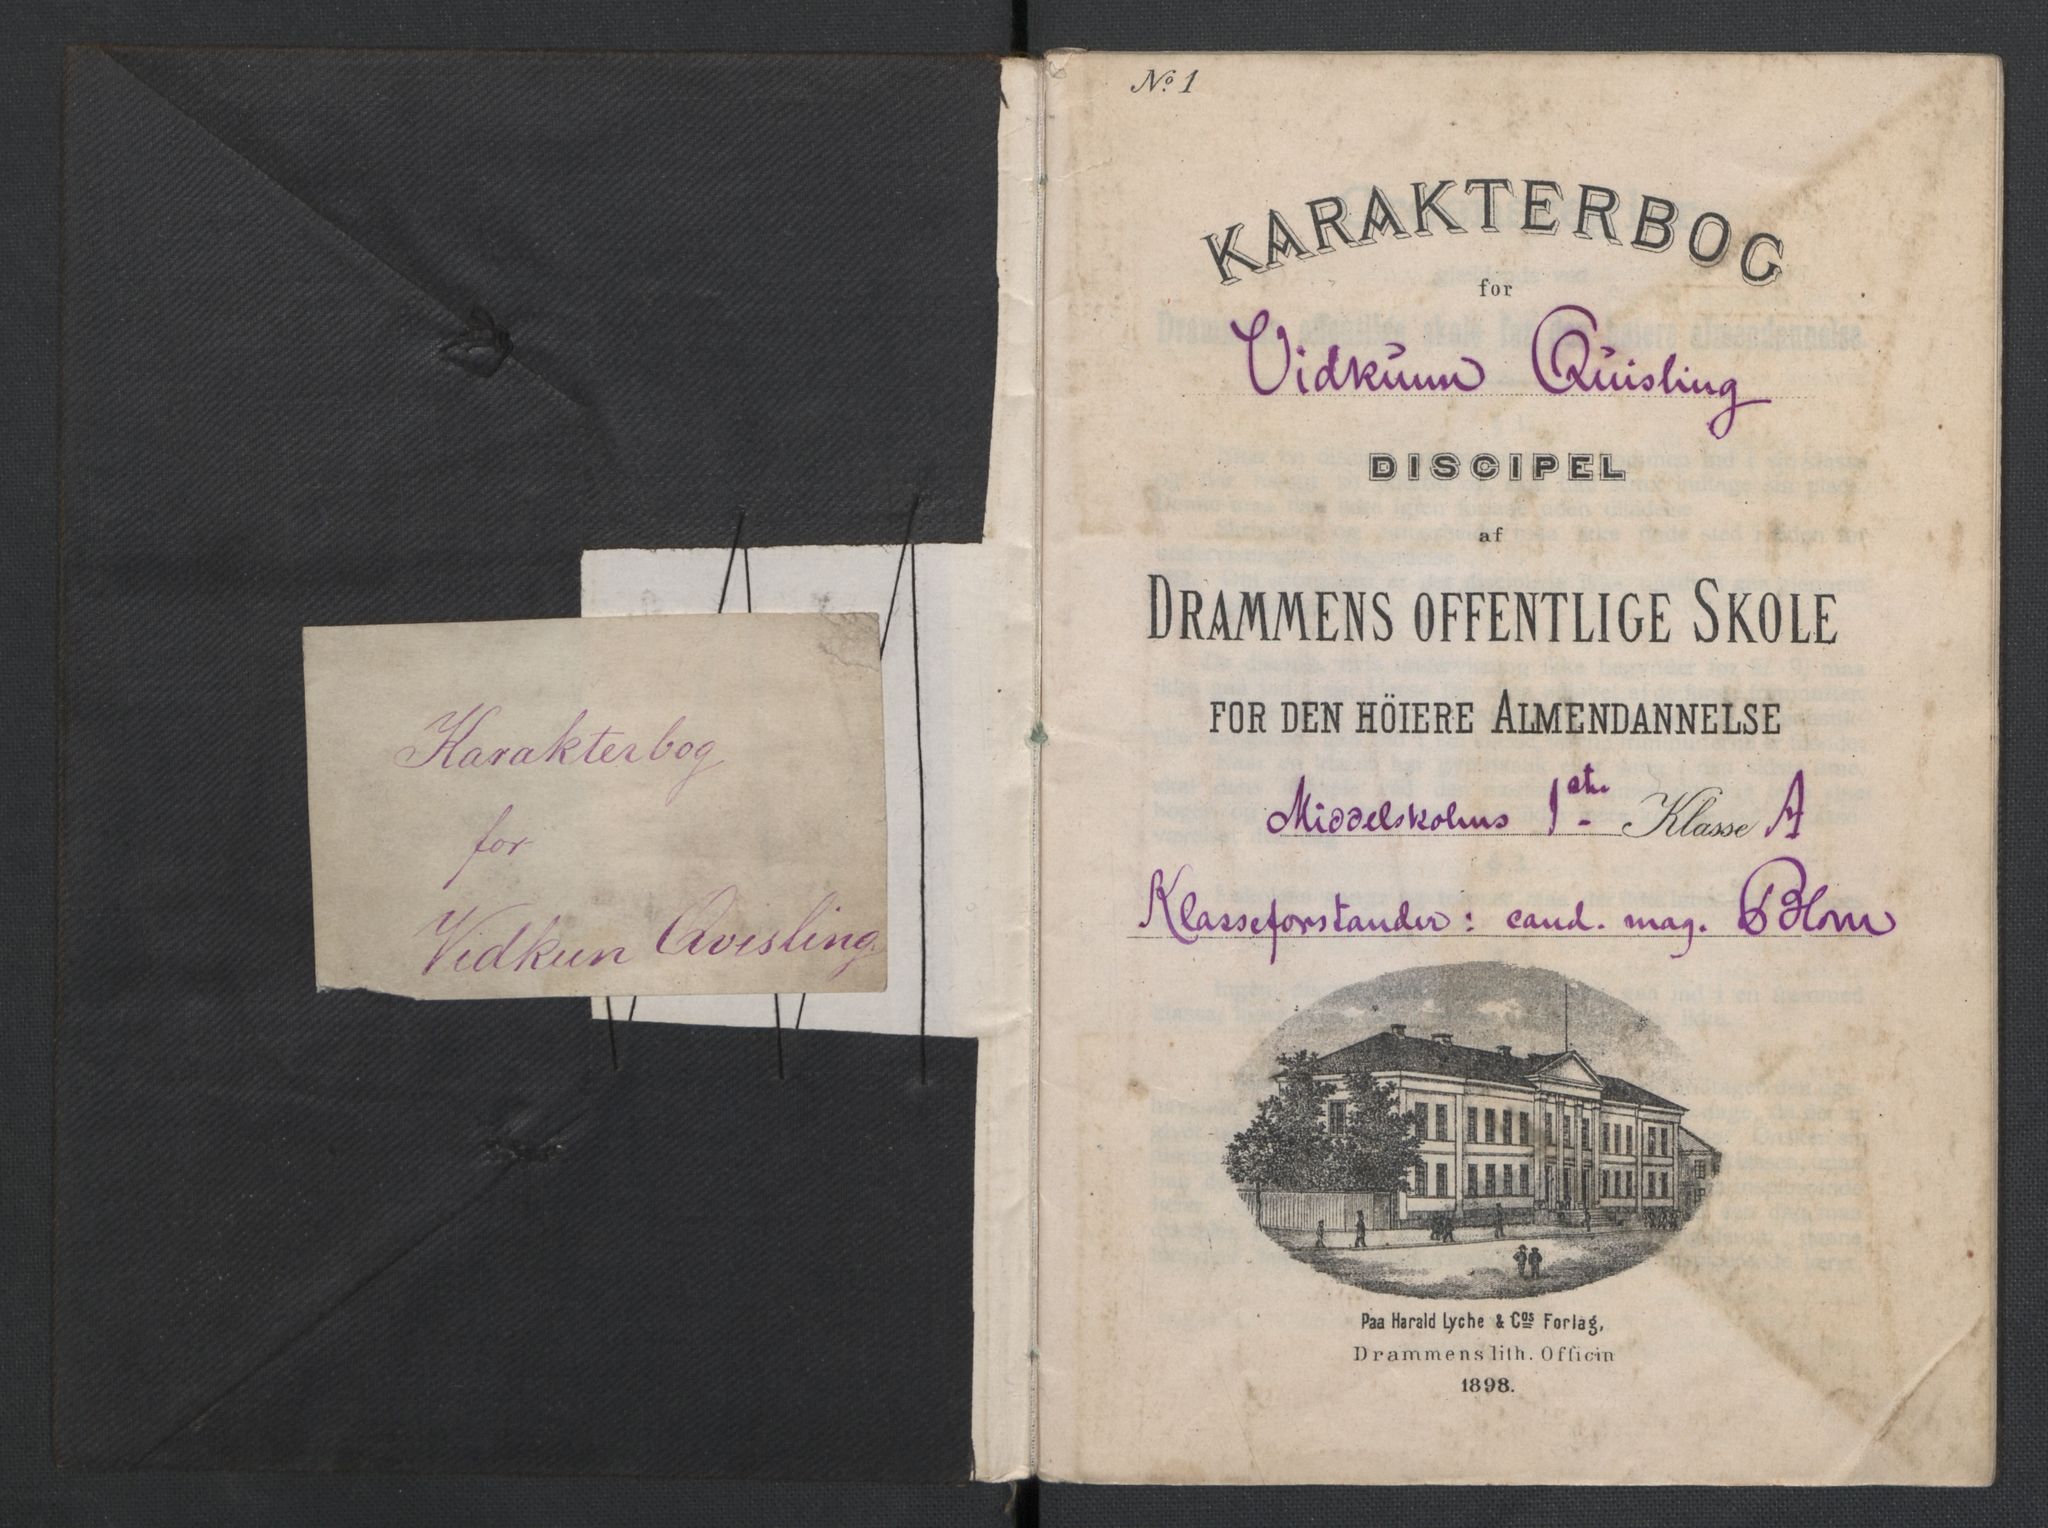 Karakterbog
for
Vidkun Qvisling
No. 1
KARAKTERBOG
for
Vidkunn Quisling
DISCIPEL
af
DRAMMENS OFFENTLIGE SKOLE
FOR DEN HÖIERE ALMENDANNELSE
Middelskolens 1ste Klasse A
Klasseforstander: cand. mag. Blom
Paa Harald Lyche & Cos Forlag,
Drammens lith. Officin
1898.